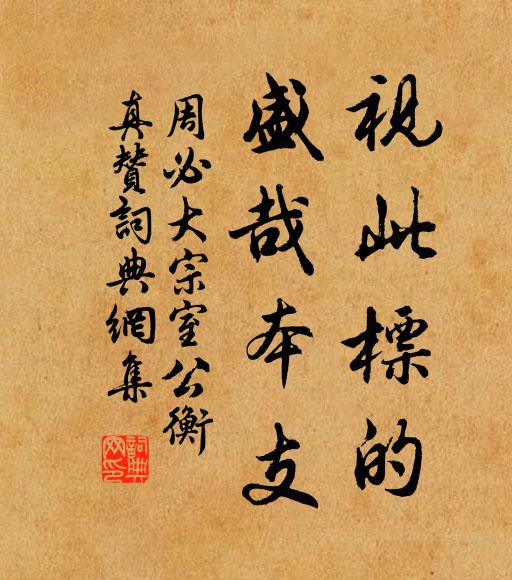 視此標的
盛哉本支
周必大宗室公衡
真贊詞典網集
詞典
网印